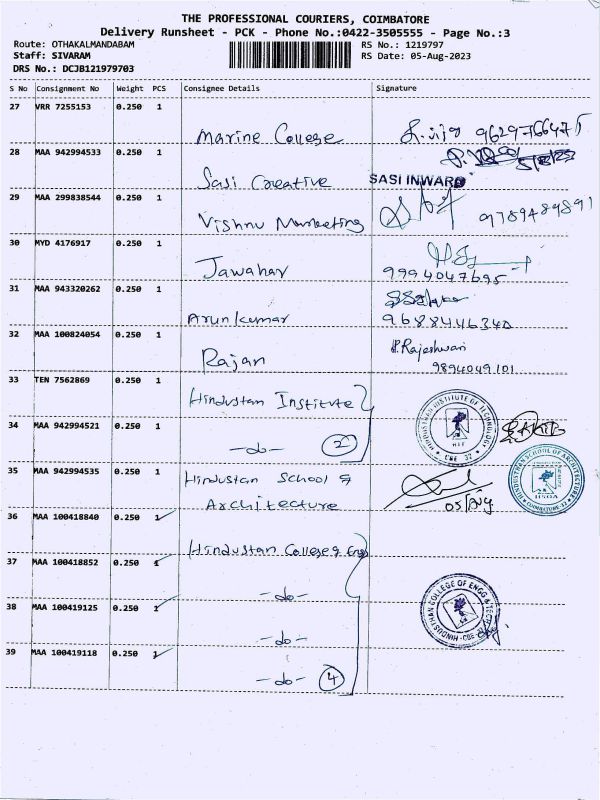 THE PROFESSIONAL COURIERS, COIMBATORE
Delivery Runsheet - PCK - Phone No.:0422-3505555 - Page No.:3
Route: OTHAKALMANDABAM RS No.: 1219797
Staff: SIVARAM RS Date: 05-Aug-2023
DRS No.: DCJB121979703
S No Consignment No Weight PCS Consignee Details Signature
27 VRR 7255153 0.250 1
Marine College 9629766475
28 MAA 942994533 0.250 1
Sasi Creative SASI INWARD
29 MAA 299838544 0.250 1
Vishnu Marketing 9789489891
30 MYD 4176917 0.250 1
Jawahar 9994047695
31 MAA 943320262 0.250 1
Arunkumar 9688446340
32 MAA 100824054 0.250 1
Rajan P.Rajeshwari
9894049101
33 TEN 7562869 0.250 1
Hindustan Institute
HINDUSTHAN INSTITUTE OF TECHNOLOGY
HIT
CBE 32
34 MAA 942994521 0.250 1
-do- 2
35 MAA 942994535 0.250 1
Hindustan School of
Architecture
05/Aug
HINDUSTHAN SCHOOL OF ARCHITECTURE
COIMBATORE-32
36 MAA 100418840 0.250 1
Hindustan College of Engg
37 MAA 100418852 0.250 1
-do-
HINDUSTHAN COLLEGE OF ENGG & TECH
CBE-32
38 MAA 100419125 0.250 1
-do-
39 MAA 100419118 0.250 1
-do- 4